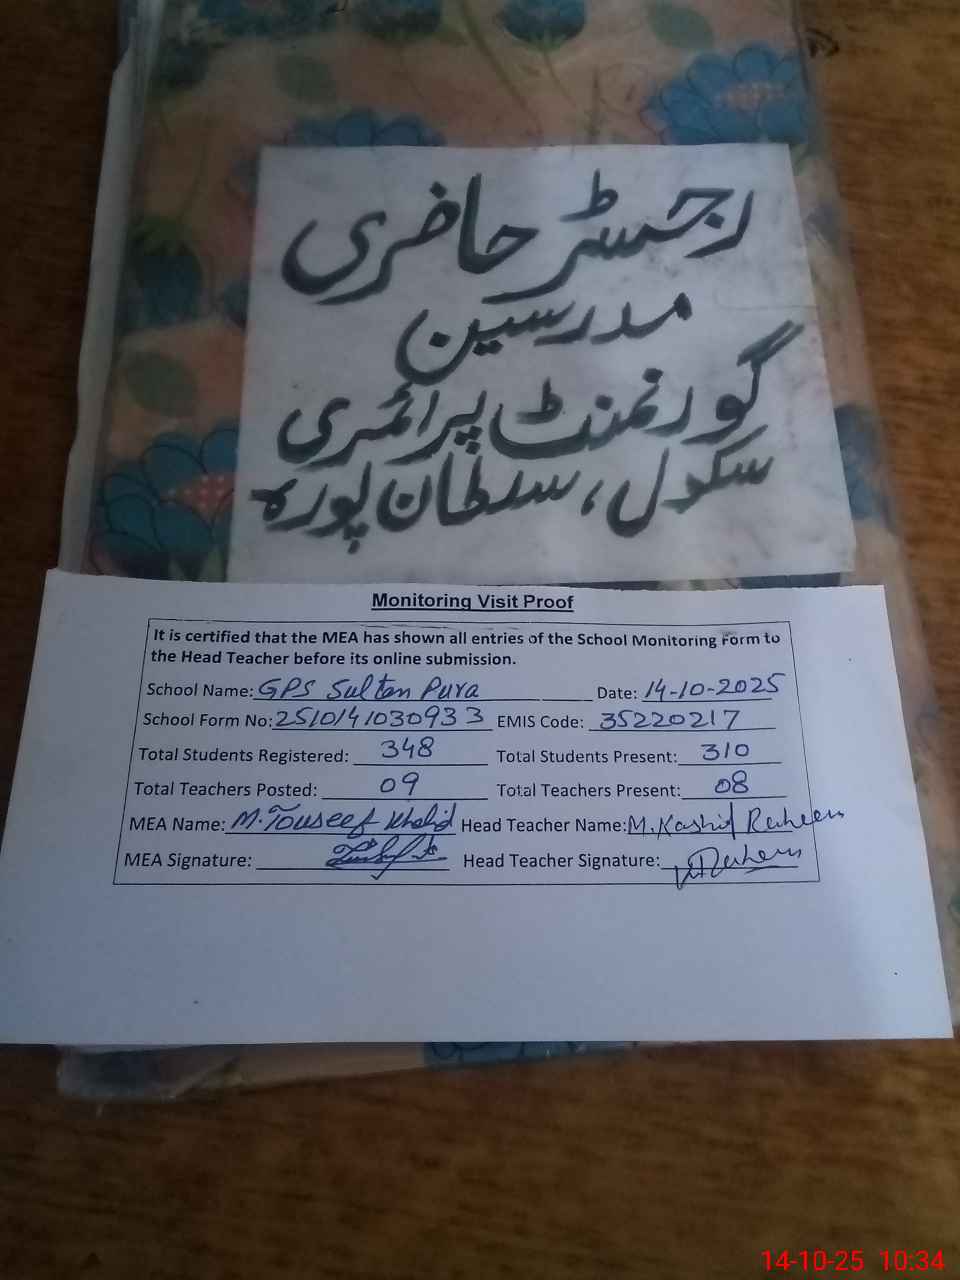 رجسٹر حاضری
مدرسین
گورنمنٹ پرائمری
سکول، سلطان پورہ
Monitoring Visit Proof
It is certified that the MEA has shown all entries of the School Monitoring Form to
the Head Teacher before its online submission.
School Name: GPS Sultan Pura Date: 14-10-2025
School Form No: 2510141030933 EMIS Code: 35220217
Total Students Registered: 348 Total Students Present: 310
Total Teachers Posted: 09 Total Teachers Present: 08
MEA Name: M. Touseef Khalid Head Teacher Name: M. Kashif Raheem
MEA Signature: Head Teacher Signature:
14-10-25 10:34